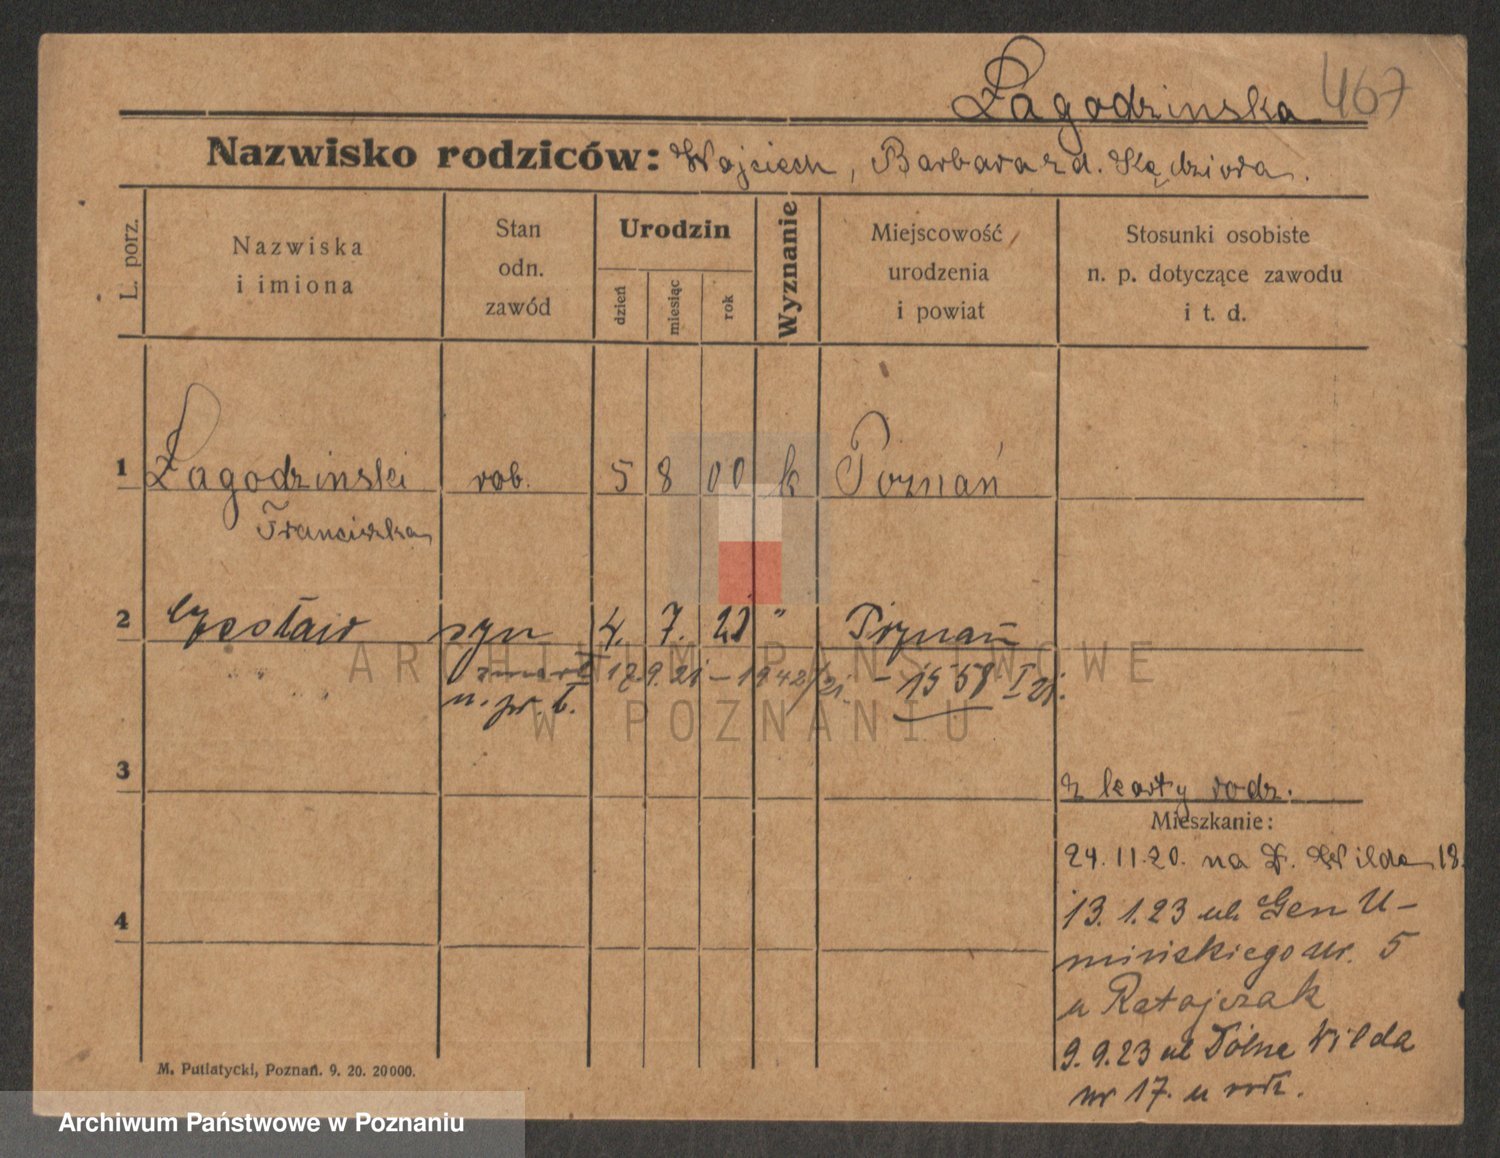 Łagodzinska 467
Nazwisko rodziców: Wojciech, Barbara z d. Kędziora.
L. porz.
Nazwiska
i imiona
Stan
odn.
zawód
Urodzin
dzień
miesiąc
rok
Wyznanie
Miejscowość
urodzenia
i powiat
Stosunki osobiste
n. p. dotyczące zawodu
i t. d.
1 Łagodzinski rob. 5 8 00 k Poznań
Franciszka
2 Czesław syn 4. 7. 21 " Poznań
zmarł 17.9.21 – 1942/21. – 1558 I 21.
ARCHIWUM PAŃSTWOWE
W POZNANIU
3
z karty rodz.
Mieszkanie:
24.11.20. na D. Wilda 18.
13.1.23 ul. Gen U-
4
mińskiego nr. 5
u Ratajczak
9.9.23 ul Dolna Wilda
nr 17. u rodz.
M. Putiatycki, Poznań. 9. 20. 20000.
Archiwum Państwowe w Poznaniu